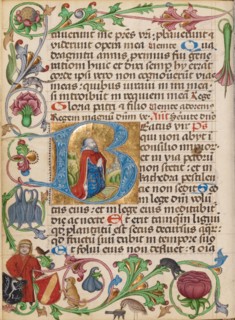 tauerunt me pres vri: et
viderunt opera mea Uenite Qua
draginta annis proximus fui gene
rationi huic et dixi semp hij errat
corde ipsi vero non cognouerunt vias
meas: quibus iuraui in ira mea
si introibut in requiem mea Rege
Gloria patri et filio Uenite adoremus
Regem Seruite dno
B Eatus vir Ps
qui non abijt i
consilio impior
et in via peccatorum
non stetit: et in
kathedra pestilencie
non sedit Sed in
lege domini volu
tas eius: et in lege eius meditabit
die ac nocte Et erit tamqm lignu
qd plantatu est secus decursus aqr:
qd fructu suu dabit in tempore suo
Et foliu eius non defluet: et oia